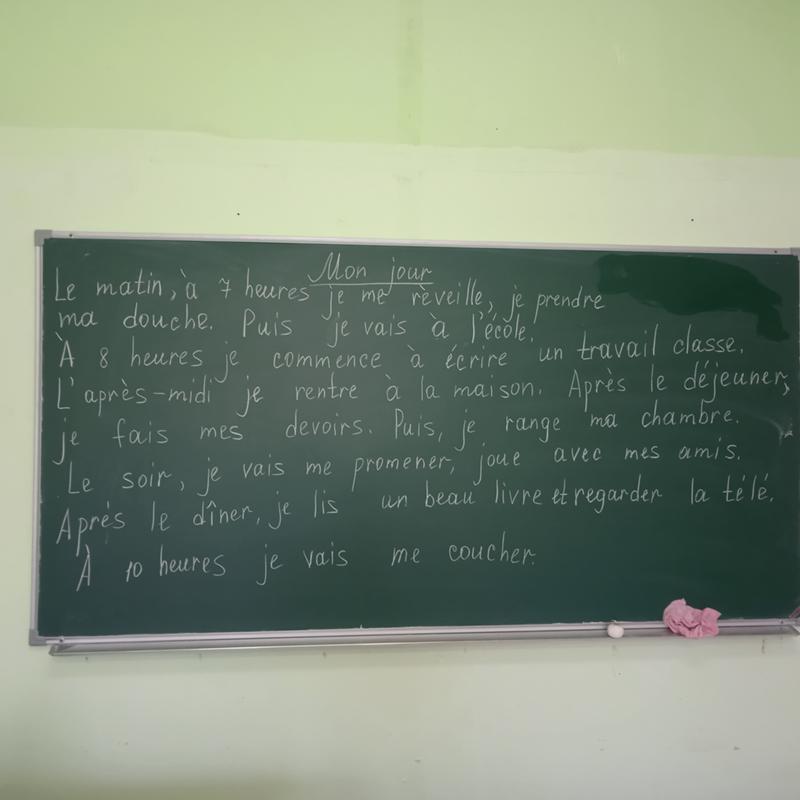 Mon jour
Le matin, à 7 heures je me rèveille, je prendre
ma douche. Puis je vais à l'école.
À 8 heures je commence à écrire un travail classe.
L'après-midi je rentre à la maison. Après le déjeuner,
je fais mes devoirs. Puis, je range ma chambre.
Le soir, je vais me promener, joue avec mes amis.
Après le dîner, je lis un beau livre et regarder la télé.
À 10 heures je vais me coucher.